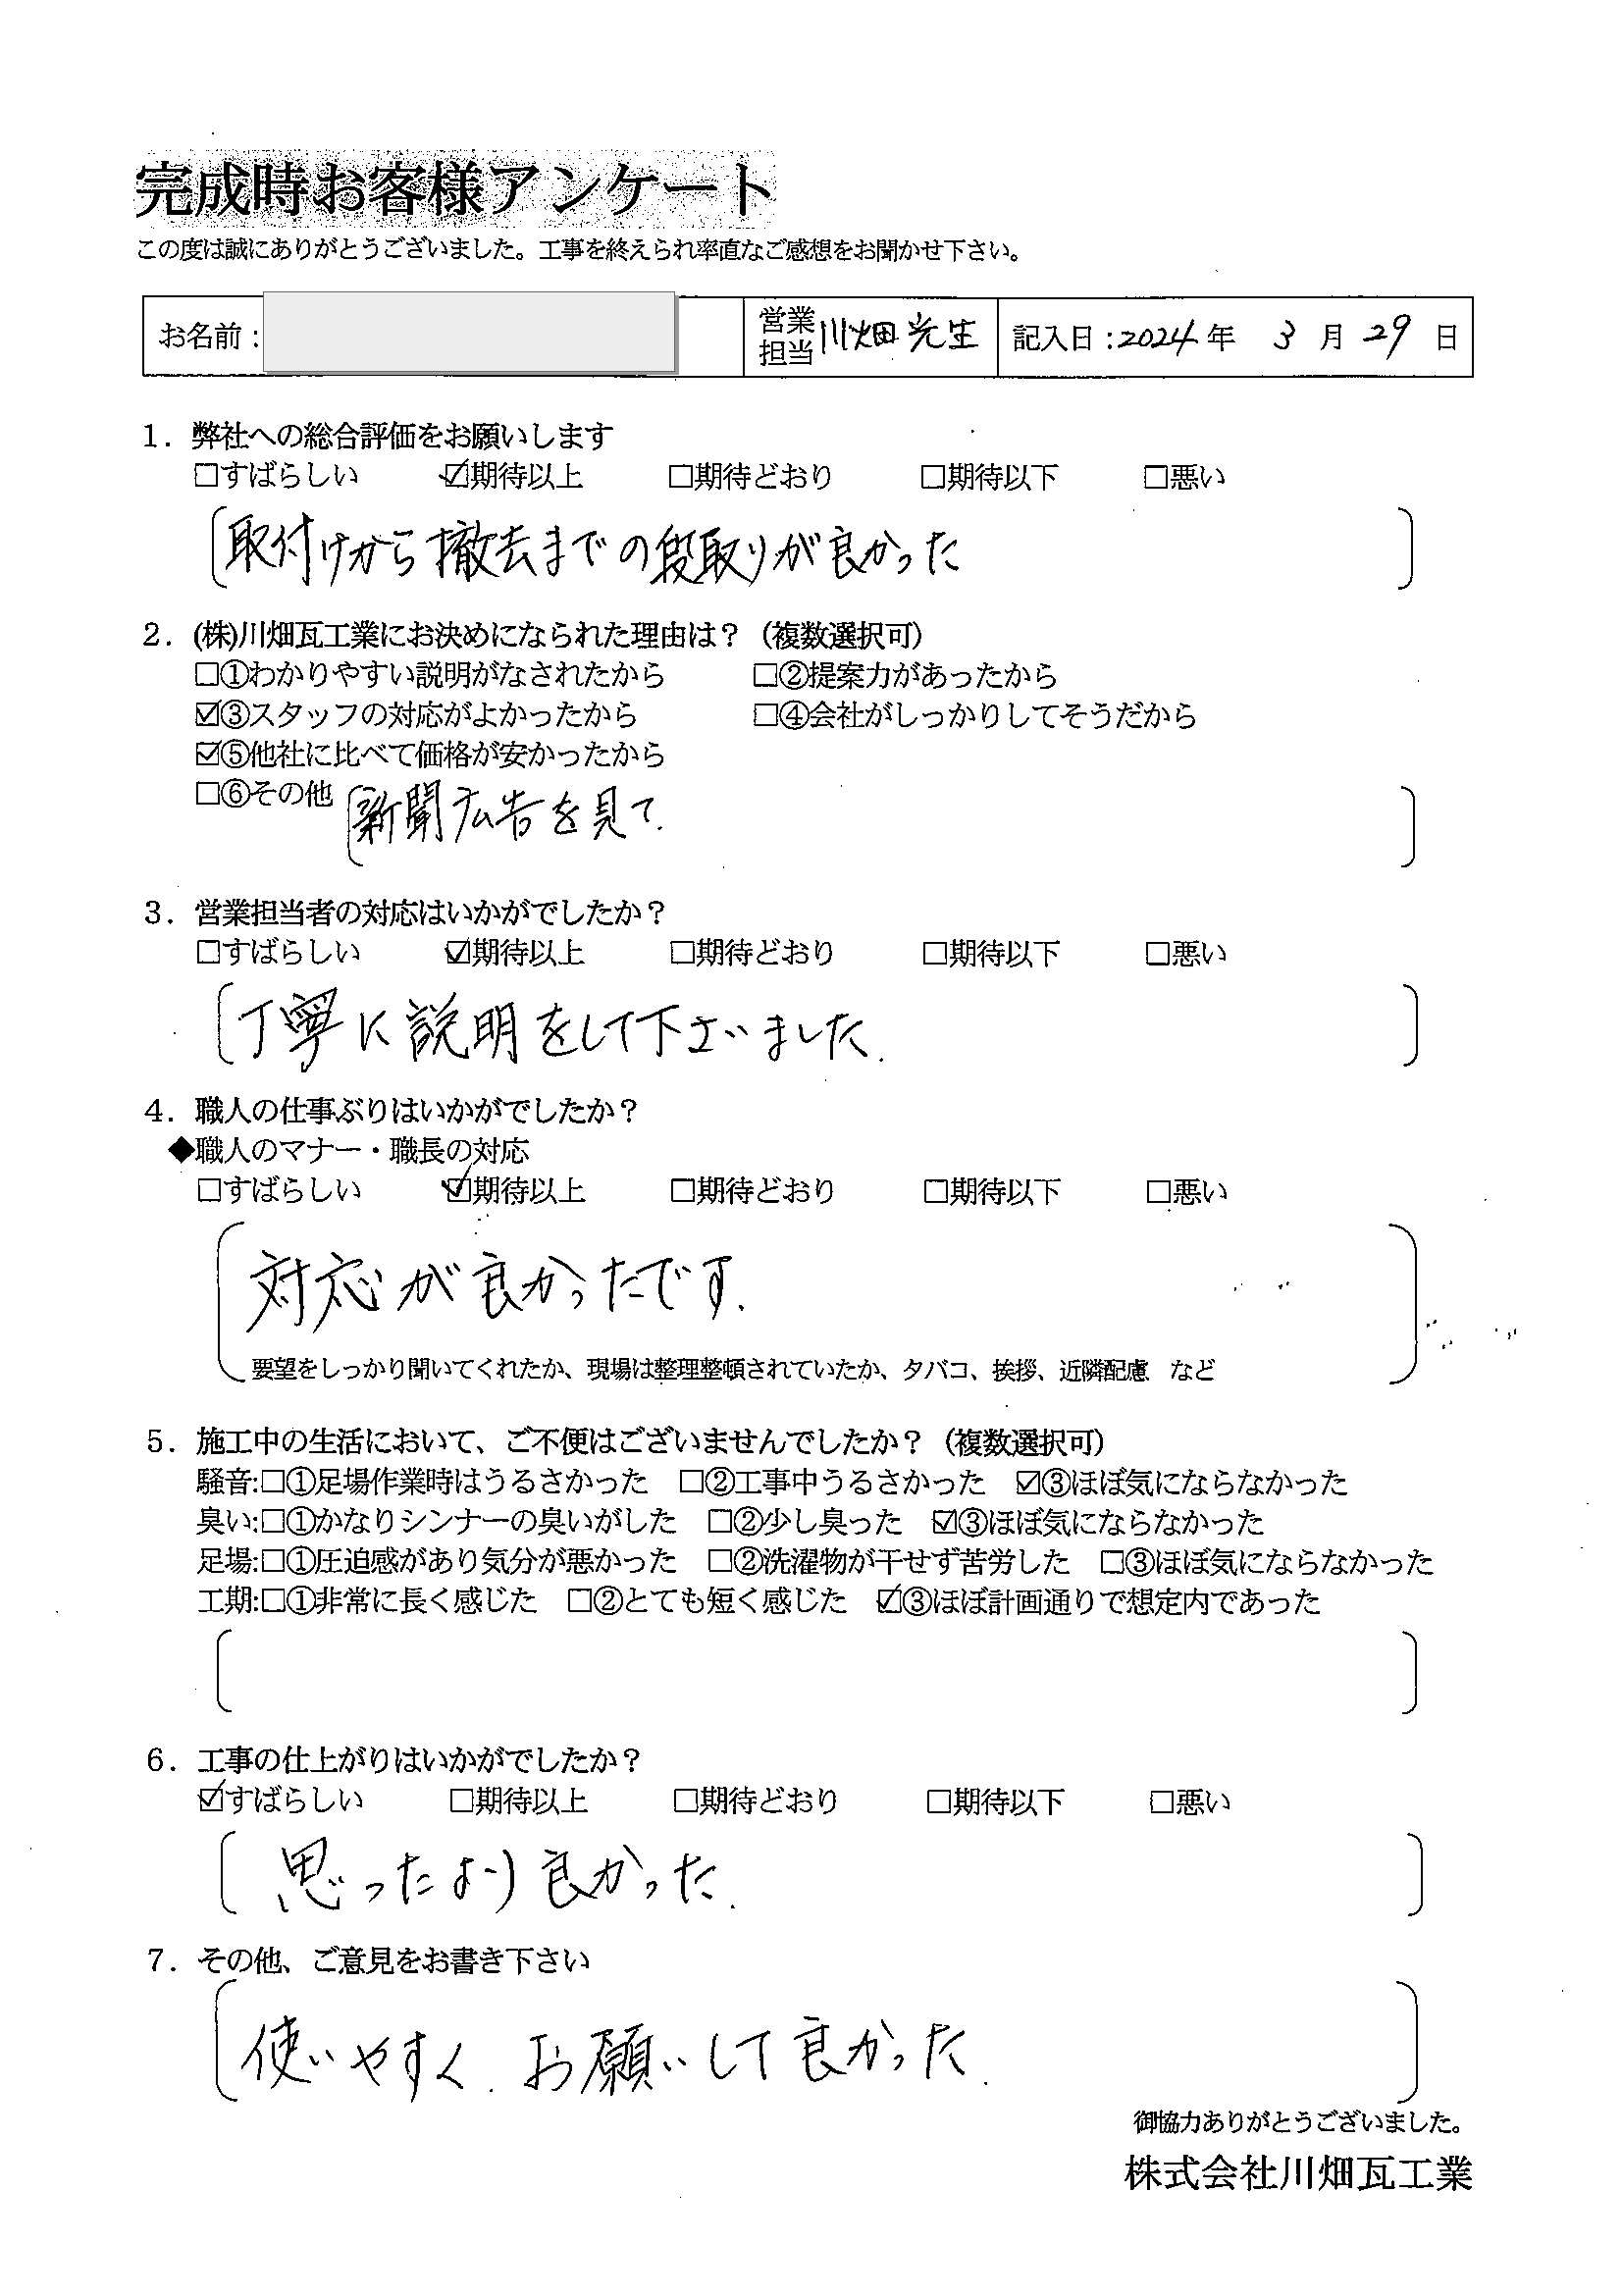 完成時お客様アンケート
この度は誠にありがとうございました。工事を終えられ率直なご感想をお聞かせ下さい。
お名前： 営業担当 川畑 光生 記入日：2024年 3月 29日
1．弊社への総合評価をお願いします
□すばらしい ☑期待以上 □期待どおり □期待以下 □悪い
取付けから撤去までの段取りが良かった
2．(株)川畑瓦工業にお決めになられた理由は？（複数選択可）
□①わかりやすい説明がなされたから □②提案力があったから
☑③スタッフの対応がよかったから □④会社がしっかりしてそうだから
☑⑤他社に比べて価格が安かったから
□⑥その他 新聞広告を見て.
3．営業担当者の対応はいかがでしたか？
□すばらしい ☑期待以上 □期待どおり □期待以下 □悪い
丁寧に説明をして下さいました.
4．職人の仕事ぶりはいかがでしたか？
◆職人のマナー・職長の対応
□すばらしい ☑期待以上 □期待どおり □期待以下 □悪い
対応が良かったです.
要望をしっかり聞いてくれたか、現場は整理整頓されていたか、タバコ、挨拶、近隣配慮 など
5．施工中の生活において、ご不便はございませんでしたか？（複数選択可）
騒音:□①足場作業時はうるさかった □②工事中うるさかった ☑③ほぼ気にならなかった
臭い:□①かなりシンナーの臭いがした □②少し臭った ☑③ほぼ気にならなかった
足場:□①圧迫感があり気分が悪かった □②洗濯物が干せず苦労した □③ほぼ気にならなかった
工期:□①非常に長く感じた □②とても短く感じた ☑③ほぼ計画通りで想定内であった
6．工事の仕上がりはいかがでしたか？
☑すばらしい □期待以上 □期待どおり □期待以下 □悪い
思ったより良かった.
7．その他、ご意見をお書き下さい
使いやすく. お願いして良かった.
御協力ありがとうございました。
株式会社川畑瓦工業